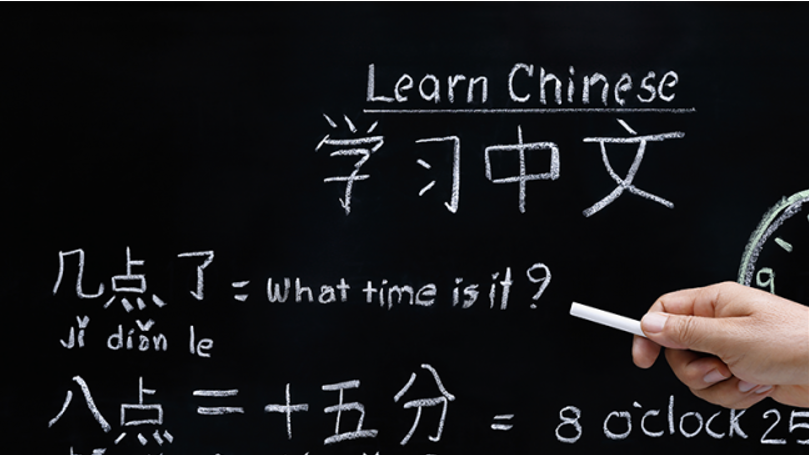 Learn Chinese
学习中文
几点了 = What time is it?
jǐ diǎn le
八点二十五分 = 8 o'clock 25
9